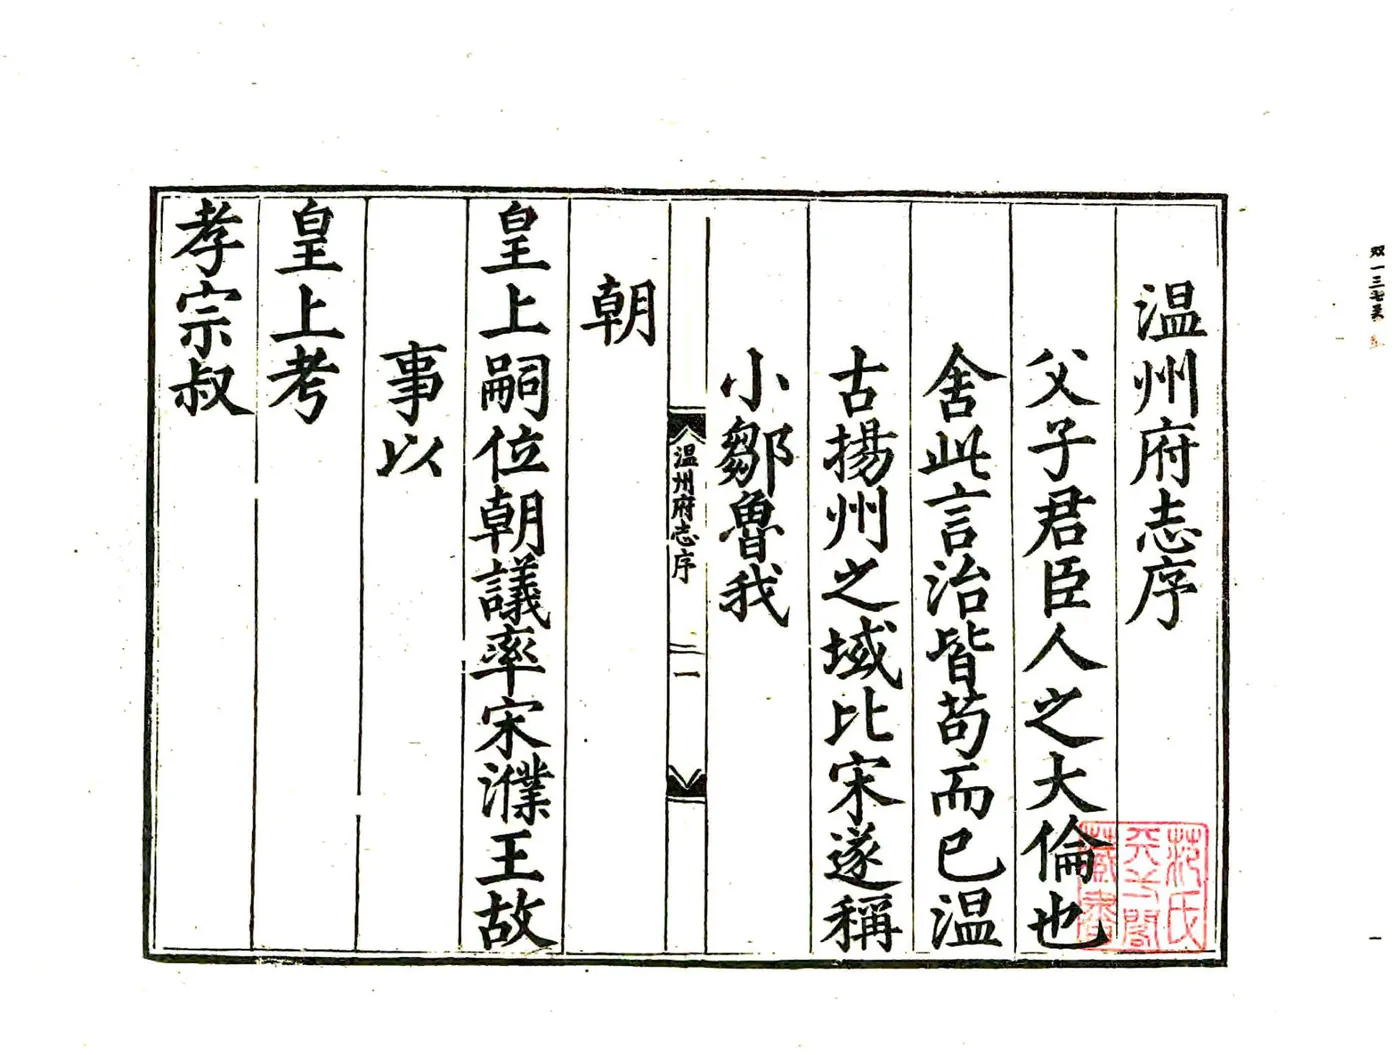 温州府志序
父子君臣人之大倫也
舍此言治皆苟而已温
古揚州之域比宋遂稱
小鄒魯我
温州府志序
一
朝
皇上嗣位朝議率宋濮王故
事以
皇上考
孝宗叔
范氏
天一閣
藏書